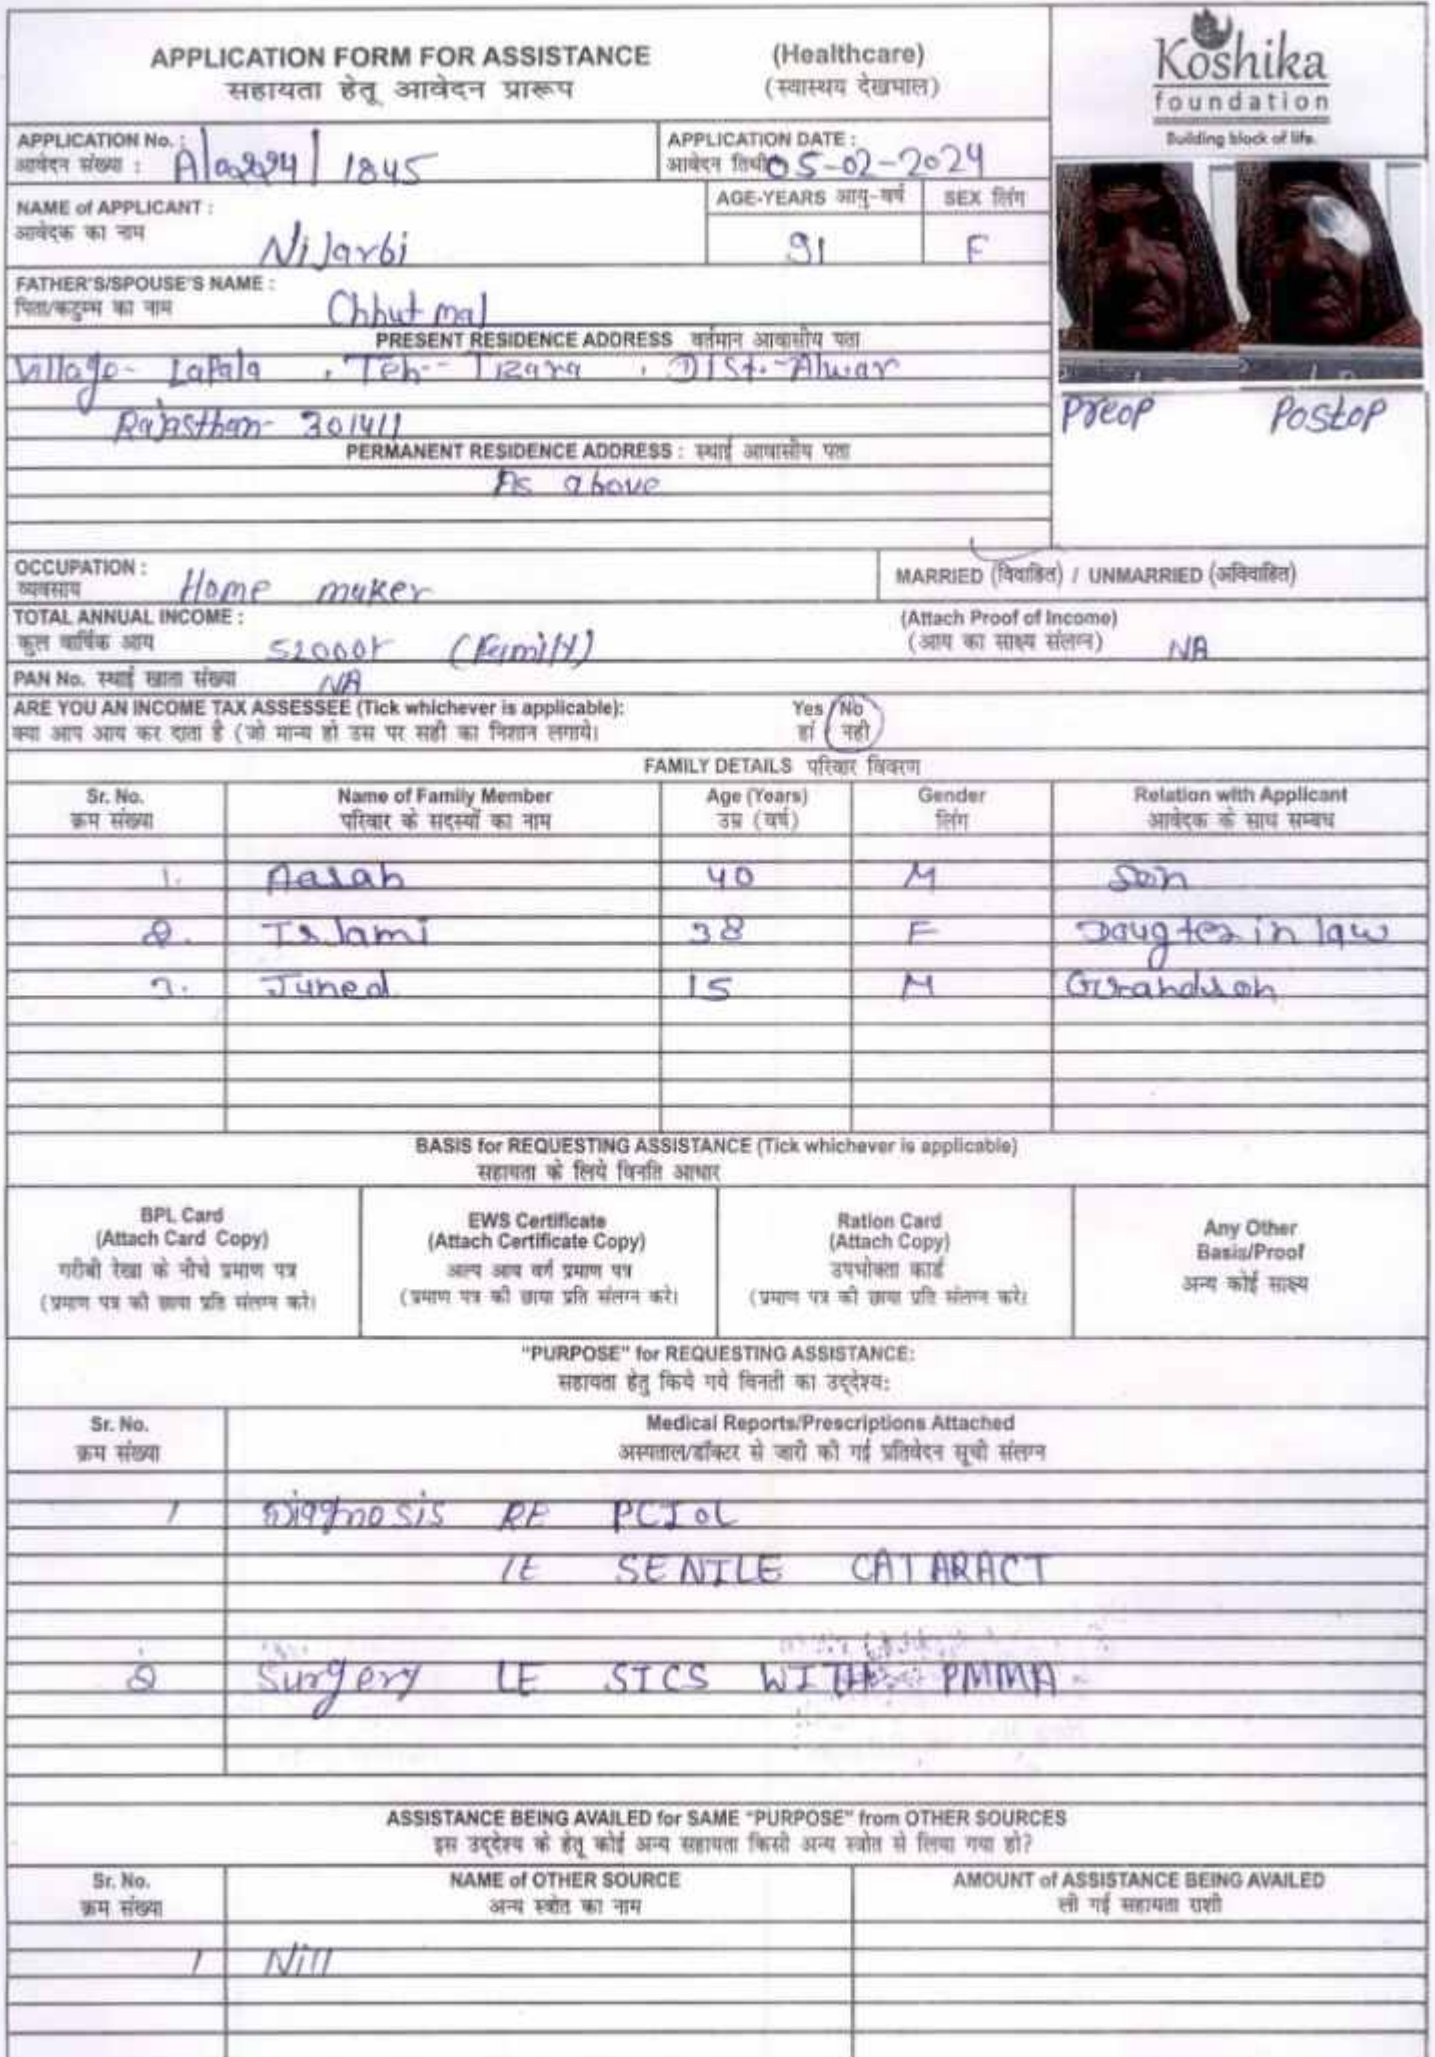 APPLICATION FORM FOR ASSISTANCE (Healthcare)
सहायता हेतू आवेदन प्रारूप (स्वास्थय देखभाल)
Koshika
foundation
Building block of life.
APPLICATION No. :
आवेदन संख्या : 1845
APPLICATION DATE :
आवेदन तिथी 05-02-2024
NAME of APPLICANT :
आवेदक का नाम Nijarbi
AGE-YEARS आयु-वर्ष 91
SEX लिंग F
FATHER'S/SPOUSE'S NAME :
पिता/कटुम्भ का नाम Chhutmal
PRESENT RESIDENCE ADDRESS वर्तमान आवासीय पता
Village- Lapala , Teh-- Tizara , Dist.-Alwar
Rajasthan- 301411
Preop Postop
PERMANENT RESIDENCE ADDRESS : स्थाई आवासीय पता
As above
OCCUPATION :
व्यवसाय Home maker
MARRIED (विवाहित) / UNMARRIED (अविवाहित)
TOTAL ANNUAL INCOME : (Attach Proof of Income)
कुल वार्षिक आय (Family) (आय का साक्ष्य संलग्न) NA
PAN No. स्थाई खाता संख्या NA
ARE YOU AN INCOME TAX ASSESSEE (Tick whichever is applicable): Yes / No
क्या आप आय कर दाता है (जो मान्य हो उस पर सही का निशान लगाये। हां / नही
FAMILY DETAILS परिवार विवरण
Sr. No. Name of Family Member Age (Years) Gender Relation with Applicant
क्रम संख्या परिवार के सदस्यों का नाम उम्र (वर्ष) लिंग आवेदक के साथ सम्बध
1. Aasab 40 M Son
2. Islami 38 F Daugter in law
3. Juned 15 M Grandson
BASIS for REQUESTING ASSISTANCE (Tick whichever is applicable)
सहायता के लिये विनति आधार
BPL Card
(Attach Card Copy)
गरीबी रेखा के नीचे प्रमाण पत्र
(प्रमाण पत्र की छाया प्रति संलग्न करे।
EWS Certificate
(Attach Certificate Copy)
अल्प आय वर्ग प्रमाण पत्र
(प्रमाण पत्र की छाया प्रति संलग्न करे।
Ration Card
(Attach Copy)
उपभोक्ता कार्ड
(प्रमाण पत्र की छाया प्रति संलग्न करे।
Any Other
Basis/Proof
अन्य कोई साक्ष्य
"PURPOSE" for REQUESTING ASSISTANCE:
सहायता हेतु किये गये विनती का उद्देश्य:
Sr. No. Medical Reports/Prescriptions Attached
क्रम संख्या अस्पताल/डॉक्टर से जारी की गई प्रतिवेदन सूची संलग्न
1 Diagnosis RE PCIOL
LE SENILE CATARACT
2 Surgery LE SICS WITH PMMA
ASSISTANCE BEING AVAILED for SAME "PURPOSE" from OTHER SOURCES
इस उद्देश्य के हेतू कोई अन्य सहायता किसी अन्य स्त्रोत से लिया गया हो?
Sr. No. NAME of OTHER SOURCE AMOUNT of ASSISTANCE BEING AVAILED
क्रम संख्या अन्य स्त्रोत का नाम ली गई सहायता राशी
1 Nill